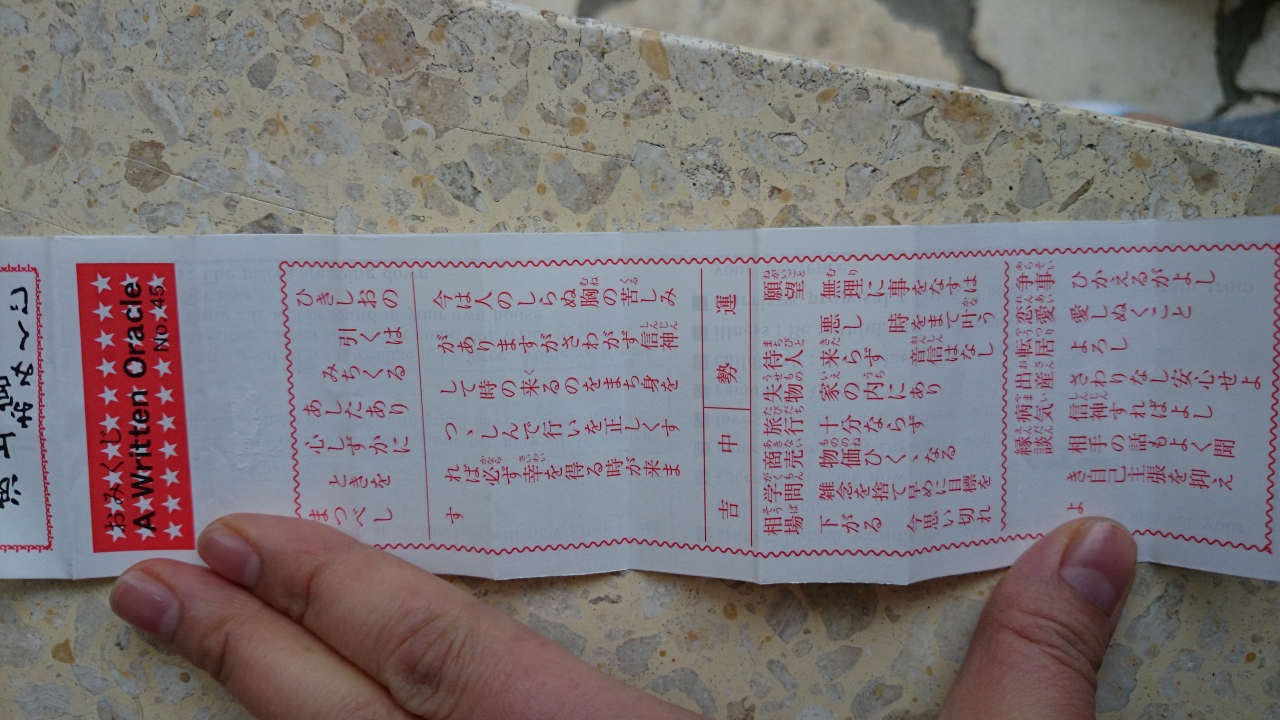 おみくじ
A Written Oracle
No.45
ひきしおの
引くは
みちくる
あしたあり
心しずかに
ときを
まつべし
今は人のしらぬ胸の苦しみ
がありますがさわがず信神
して時の来るのをまち身を
つゝしんで行いを正しくす
れば必ず幸を得る時が来ま
す
運勢 中吉
願望 無理に事をなすは
悪し 時をまて叶う
待人 来らず 音信はなし
失物 家の内にあり
旅行 十分ならず
商売 物価ひくゝなる
学問 雑念を捨て早めに目標を
相場 下がる 今思い切れ
争事 ひかえるがよし
恋愛 愛しぬくこと
転居 よろし
出産 さわりなし安心せよ
病気 信神すればよし
縁談 相手の話もよく聞
き自己主張を抑え
よ